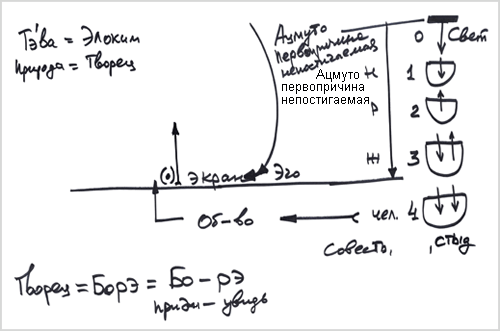 Тэ'ва = Элоким
природа = Творец
Ацмуто
первопричина
непостигаемая
Ацмуто
первопричина
непостигаемая
0 Свет
Н 1
Р 2
Ж 3
чел. 4
(•) экран Эго
Об-во
Совесть, , стыд
Творец = Борэ = Бо - рэ
приди - увидь